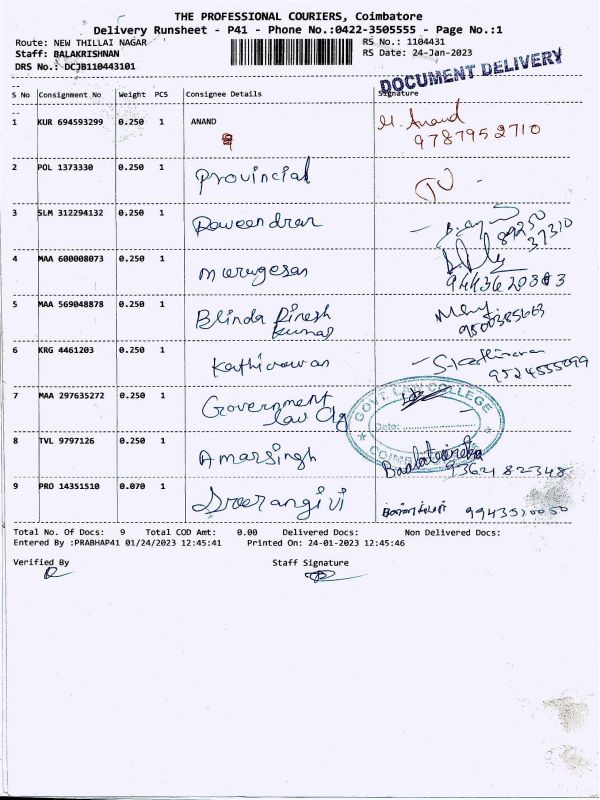 THE PROFESSIONAL COURIERS, Coimbatore
Delivery Runsheet - P41 - Phone No.:0422-3505555 - Page No.:1
Route: NEW THILLAI NAGAR
RS No.: 1104431
Staff: BALAKRISHNAN
RS Date: 24-Jan-2023
DRS No.: DCJB110443101
DOCUMENT DELIVERY
S No Consignment No Weight PCS Consignee Details Signature
1 KUR 694593299 0.250 1 ANAND M. Anand
9787952710
2 POL 1373330 0.250 1 Provincial
3 SLM 312294132 0.250 1 Raveendran
89250
37310
4 MAA 600008073 0.250 1 Murugesan
5 MAA 569048878 0.250 1 Blinda Dinesh
kumar
6 KRG 4461203 0.250 1 Kathiravan S.Kathiravan
9524555099
7 MAA 297635272 0.250 1 Government
law Clg
GOVT LAW COLLEGE
Date:
8 TVL 9797126 0.250 1 Amarsingh
9362182348
9 PRO 14351510 0.070 1
Total No. Of Docs: 9 Total COD Amt: 0.00 Delivered Docs: Non Delivered Docs:
Entered By :PRABHAP41 01/24/2023 12:45:41 Printed On: 24-01-2023 12:45:46
Verified By Staff Signature